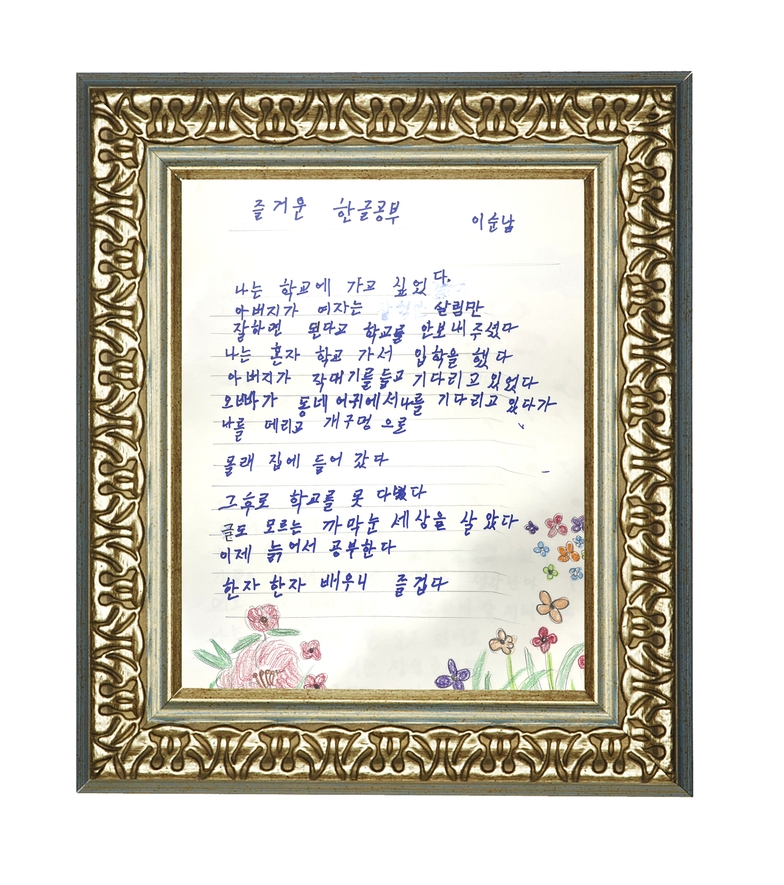 즐거운 한글공부
이순남
나는 학교에 가고 싶었다.
아버지가 여자는 살림만
잘하면 된다고 학교를 안보내주셨다
나는 혼자 학교 가서 입학을 했다
아버지가 작대기를들고 기다리고 있었다
오빠가 동네어귀에서나를 기다리고 있다가
나를 데리고 개구멍 으로
몰래 집에 들어 갔다
그후로 학교를 못 다녔다
글도 모르는 까막눈 세상을 살았다
이제 늙어서 공부한다
한자 한자 배우니 즐겁다